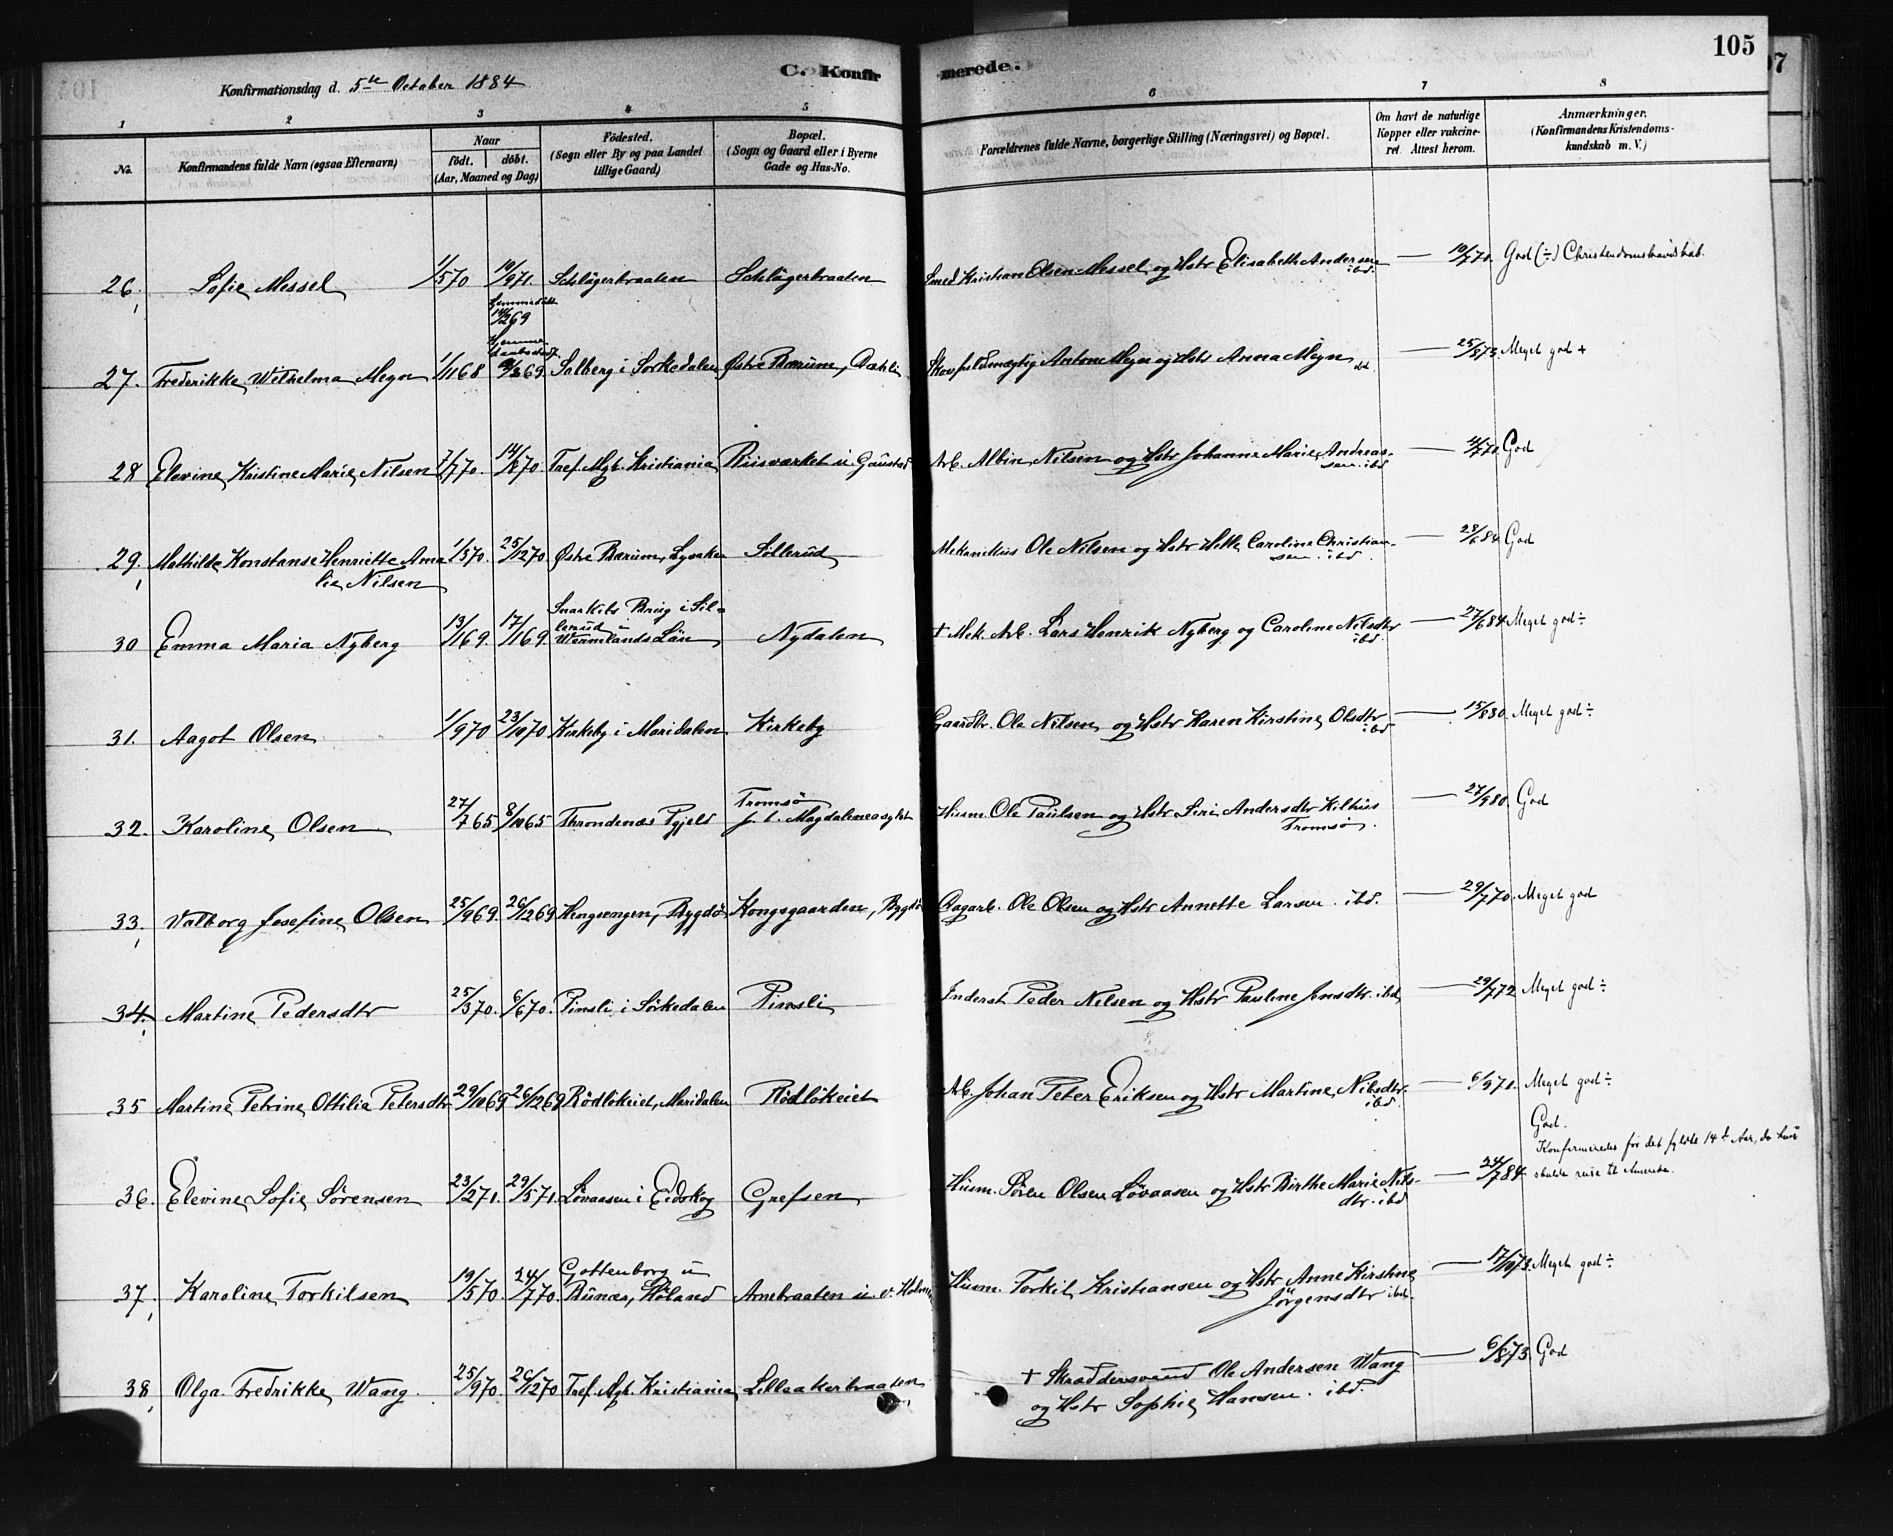 105
C. Konfirmerede.
Konfirmationsdag d. 5te October 1884
1 2 3 4 5 6 7 8
No. Konfirmandens fulde Navn (ogsaa Efternavn)
Naar födt. döbt. (Aar, Maaned og Dag)
Födested. (Sogn eller By og paa Landet tillige Gaard)
Bopæl. (Sogn og Gaard eller i Byerne Gade og Hus-No.
Forældrenes fulde Navne, borgerlige Stilling (Næringsvei) og Bopæl.
Om havt de naturlige Kopper eller vakcineret. Attest herom.
Anmærkninger. (Konfirmandens Kristendomskundskab m. V.)
26. Sofie Messel 1/5 70 Schlägerbraaten Schlägerbraaten Smed Kristian Olsen Messel og Hstr Elisabeth Andersen ibd. — God (÷) Christendomskundskab.
27. Frederikke Wilhelma Megn 1/11 68 Solberg i Sørkedalen Østre Bærum, Dæhli Anton Megn og Hstr Anna Megn ibd. — 25/5 73 Meget god +
28 Elevine Kristine Marie Nilsen 7/7 70. Tref. Mgh. Kristiania Riisværket u. Gaustad Arb. Albin Nilsen og Hstr Johanne Marie Andreassen ibd — God
29. Mathilde Konstanse Henriette Amalie Nilsen 25/12 70 Østre Bærum, Lysaker Sollerud Mekanikus Ole Nilsen og Hstr Caroline Christiansen ibd. — 28/6 84 God
30 Emma Maria Nyberg 13/1 69. 17/1 69. Wermlands Län Nydalen + Mek. Arb. Lars Henrik Nyberg og Caroline Nilsdtr ibd. — 27/6 84 Meget god ÷
31. Aagot Olsen 1/9 70 23/10 70 Kirkeby i Maridalen Kirkeby Gaardbr. Ole Nilsen og Hstr Karen Kirstine Olsdtr ibd — 15/8 80. Meget god ÷
32. Karoline Olsen 27/7 65 8/10 65 Throndenæs Pgjeld Tromsø Husm. Ole Paulsen og Hstr Siri Andersdtr Tromsø. — 27/9 80. God
33. Valborg Josefine Olsen 25/9 69. 26/12 69 Hengsengen, Bygdø Kongsgaarden, Bygdø Ole Olsen og Hstr Annette Larsen ibd. — 29/7 70. Meget god
34. Martine Pedersdtr 25/3 70. 6/6 70. Pinsli i Sörkedalen Pinsli Inderst Peder Nilsen og Hstr Pauline Jensdtr ibd — 29/7 72 Meget god ÷
35 Martine Petrine Ottilie Petersdtr 29/10 69 26/12 69 Rödlökeiet, Maridalen Rödlökeiet Arb. Johan Peter Eriksen og Hstr Martine Nilsdtr. ibd. — 6/9 71. Meget god ÷
36. Elevine Sofie Sørensen 23/2 71. 29/5 71. Løvaasen i Eidskog Grefsen Husm. Søren Olsen Løvaasen og Hstr Birthe Marie Nilsdtr. ibd — 24/7 84 God. Konfirmeredes før det fyldte 14de Aar, da hun skulde reise til Amerika.
37. Karoline Torkilsen 19/5 70. 24/7 70. Gottenborg u Bunæs, Høland Arnebraaten u. v. Holmen Husm. Torkil Kristiansen og Hstr Anne Kirstine Jörgensdtr ibd. — 17/10 73. Meget god ÷
38. Olga Fredrikke Wang. 25/9 70. 26/12 70 Tref. Mgh. Kristiania Lilleakerbraaten + Skræddersvend Ole Andersen Wang og Hstr Sophie Hansen. ibd. — 6/8 73. God